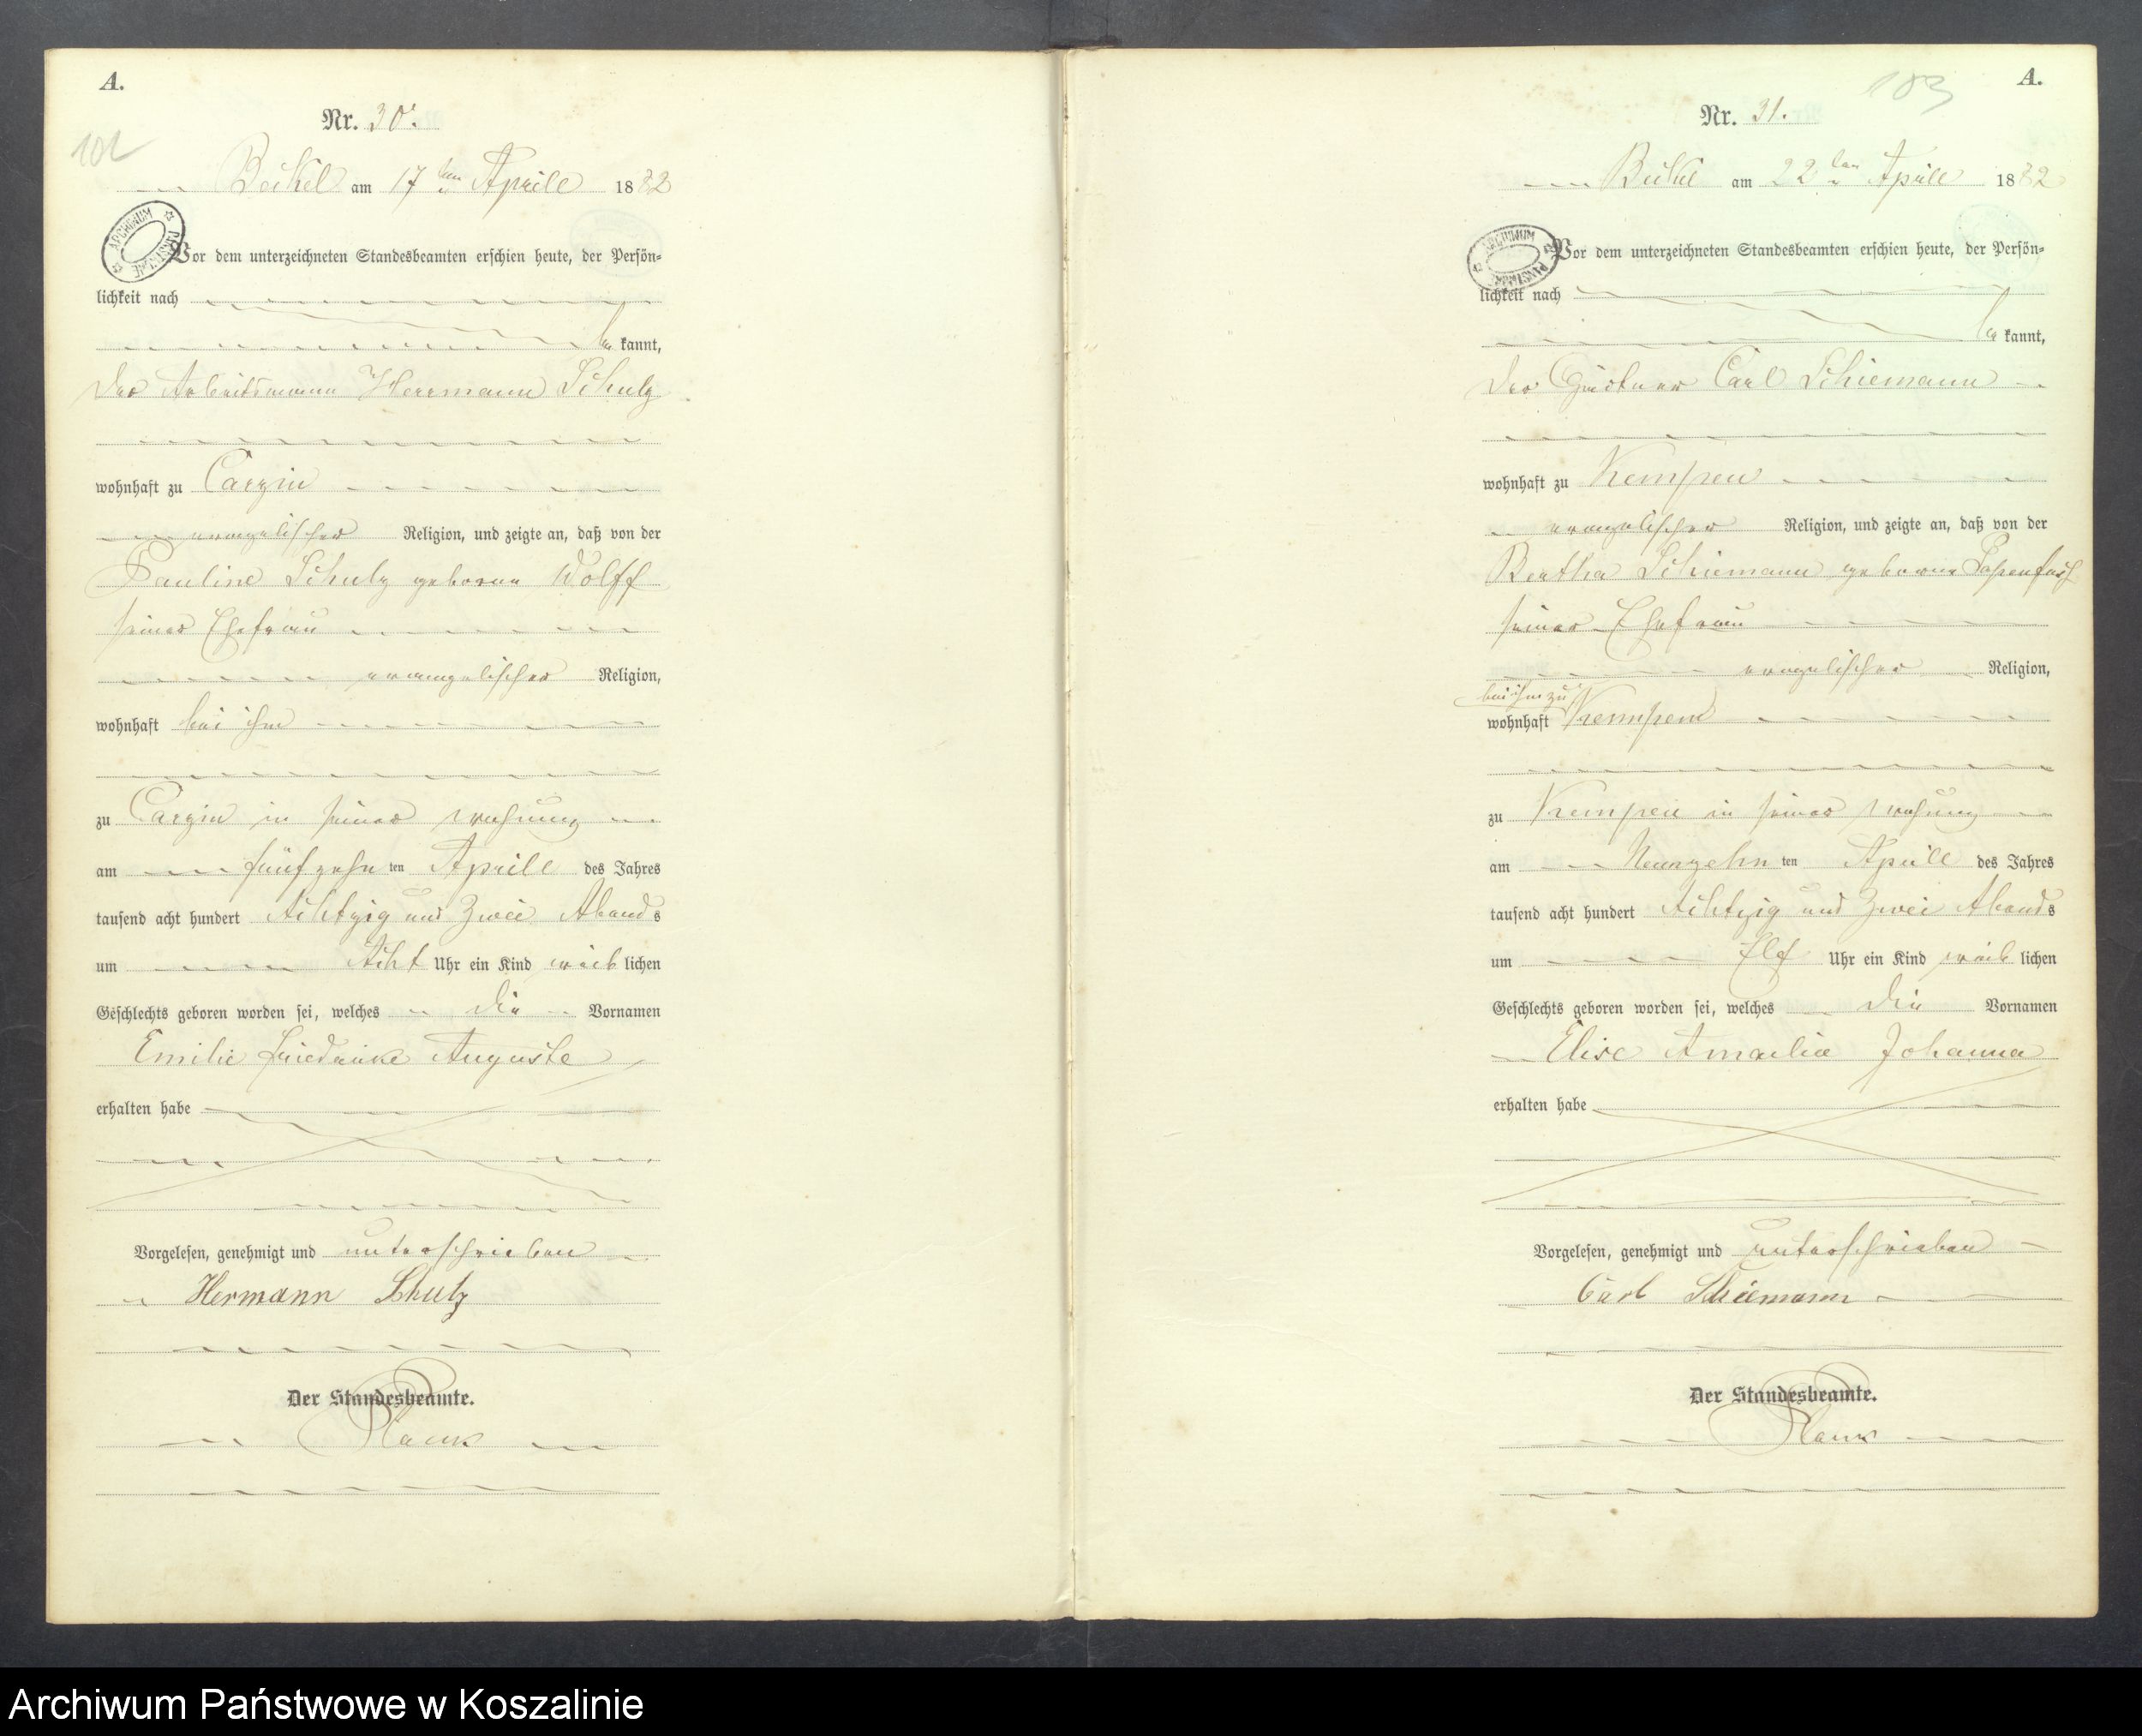 A.
Nr. 30.
102
Beikel am 17 ten Aprill 1882
ARCHIWUM PAŃSTWOWE
Vor dem unterzeichneten Standesbeamten erschien heute, der Persön-
lichkeit nach
be kannt,
der Arbeitsmann Herrmann Schulz
wohnhaft zu Carzin
evangelischer Religion, und zeigte an, daß von der
Pauline Schulz geborne Wolff
seiner Ehefrau
evangelischer Religion,
wohnhaft bei ihm
zu Carzin in seiner Wohnung
am fünfzehn ten Aprill des Jahres
tausend acht hundert Achtzig und Zwei Abends
um Acht Uhr ein Kind weib lichen
Geschlechts geboren worden sei, welches die Vornamen
Emilie Friedrike Auguste
erhalten habe
Vorgelesen, genehmigt und unterschrieben
Hermann Schulz
Der Standesbeamte.
A.
103
Nr. 31.
Beikel am 22 ten Aprill 1882
ARCHIWUM PAŃSTWOWE
Vor dem unterzeichneten Standesbeamten erschien heute, der Persön-
lichkeit nach
be kannt,
der Gärtner Carl Schiemann
wohnhaft zu Kempen
evangelischer Religion, und zeigte an, daß von der
Bertha Schiemann geborne Papenfuß
seiner Ehefrau
evangelischer Religion,
bei ihm zu
wohnhaft Kempen
zu Kempen in seiner Wohnung
am Neunzehn ten Aprill des Jahres
tausend acht hundert Achtzig und Zwei Abends
um Elf Uhr ein Kind weib lichen
Geschlechts geboren worden sei, welches die Vornamen
Elise Amailie Johanna
erhalten habe
Vorgelesen, genehmigt und unterschrieben
Carl Schiemann
Der Standesbeamte.
Archiwum Państwowe w Koszalinie